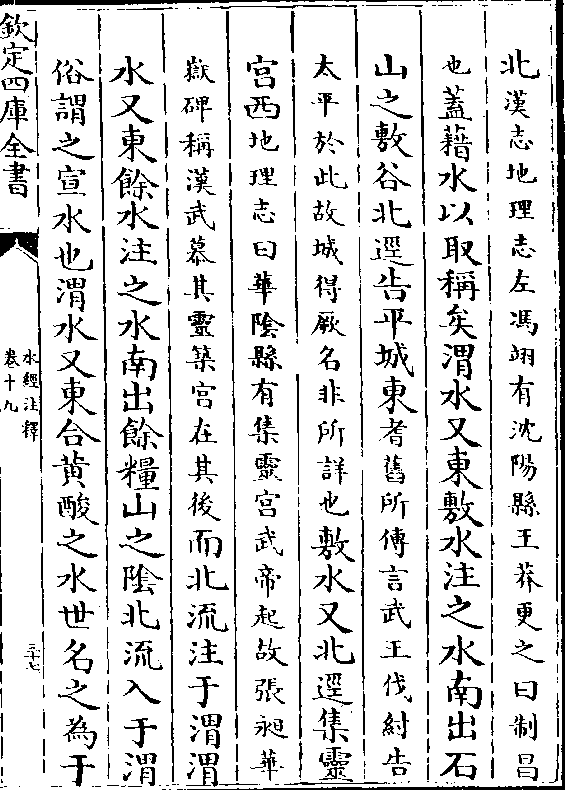 北漢志地理志左馮翊有沈陽縣王莽更之曰制昌
也蓋藉水以取稱矣渭水又東敷水注之水南出石
山之敷谷北逕告平城東耆舊所傳言武王伐紂告
太平於此故城得厥名非所詳也敷水又北逕集靈
宮西地理志曰華陰縣有集靈宮武帝起故張昶華
嶽碑稱漢武慕其靈築宮在其後而北流注于渭渭
水又東餘水注之水南出餘糧山之陰北流入于渭
俗謂之宣水也渭水又東合黄酸之水世名之為于
欽定四庫全書
水經注釋
卷十九
三十七